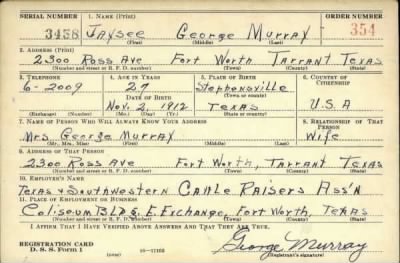 SERIAL NUMBER 1. NAME (Print) ORDER NUMBER
3458 Jaysee George Murray 354
(First) (Middle) (Last)
2. ADDRESS (Print)
2300 Ross Ave Fort Worth Tarrant Texas
(Number and street or R. F. D. number) (Town) (County) (State)
3. TELEPHONE 4. AGE IN YEARS 5. PLACE OF BIRTH 6. COUNTRY OF CITIZENSHIP
6-2009 27 Stephensville
DATE OF BIRTH (Town or county)
Nov. 2, 1912 Texas U.S.A
(Exchange) (Number) (Mo.) (Day) (Yr.) (State or country)
7. NAME OF PERSON WHO WILL ALWAYS KNOW YOUR ADDRESS 8. RELATIONSHIP OF THAT PERSON
Mrs George Murray Wife
(Mr., Mrs., Miss) (First) (Middle) (Last)
9. ADDRESS OF THAT PERSON
2300 Ross Ave Fort Worth, Tarrant Texas
(Number and street or R. F. D. number) (Town) (County) (State)
10. EMPLOYER'S NAME
Texas & Southwestern Cattle Raisers Ass'n
11. PLACE OF EMPLOYMENT OR BUSINESS
Coliseum BLDG, E. Exchange, Fort Worth, Texas
(Number and street or R. F. D. number) (Town) (County) (State)
I AFFIRM THAT I HAVE VERIFIED ABOVE ANSWERS AND THAT THEY ARE TRUE.
REGISTRATION CARD
D. S. S. Form 1 (over) George Murray
(Registrant's signature)